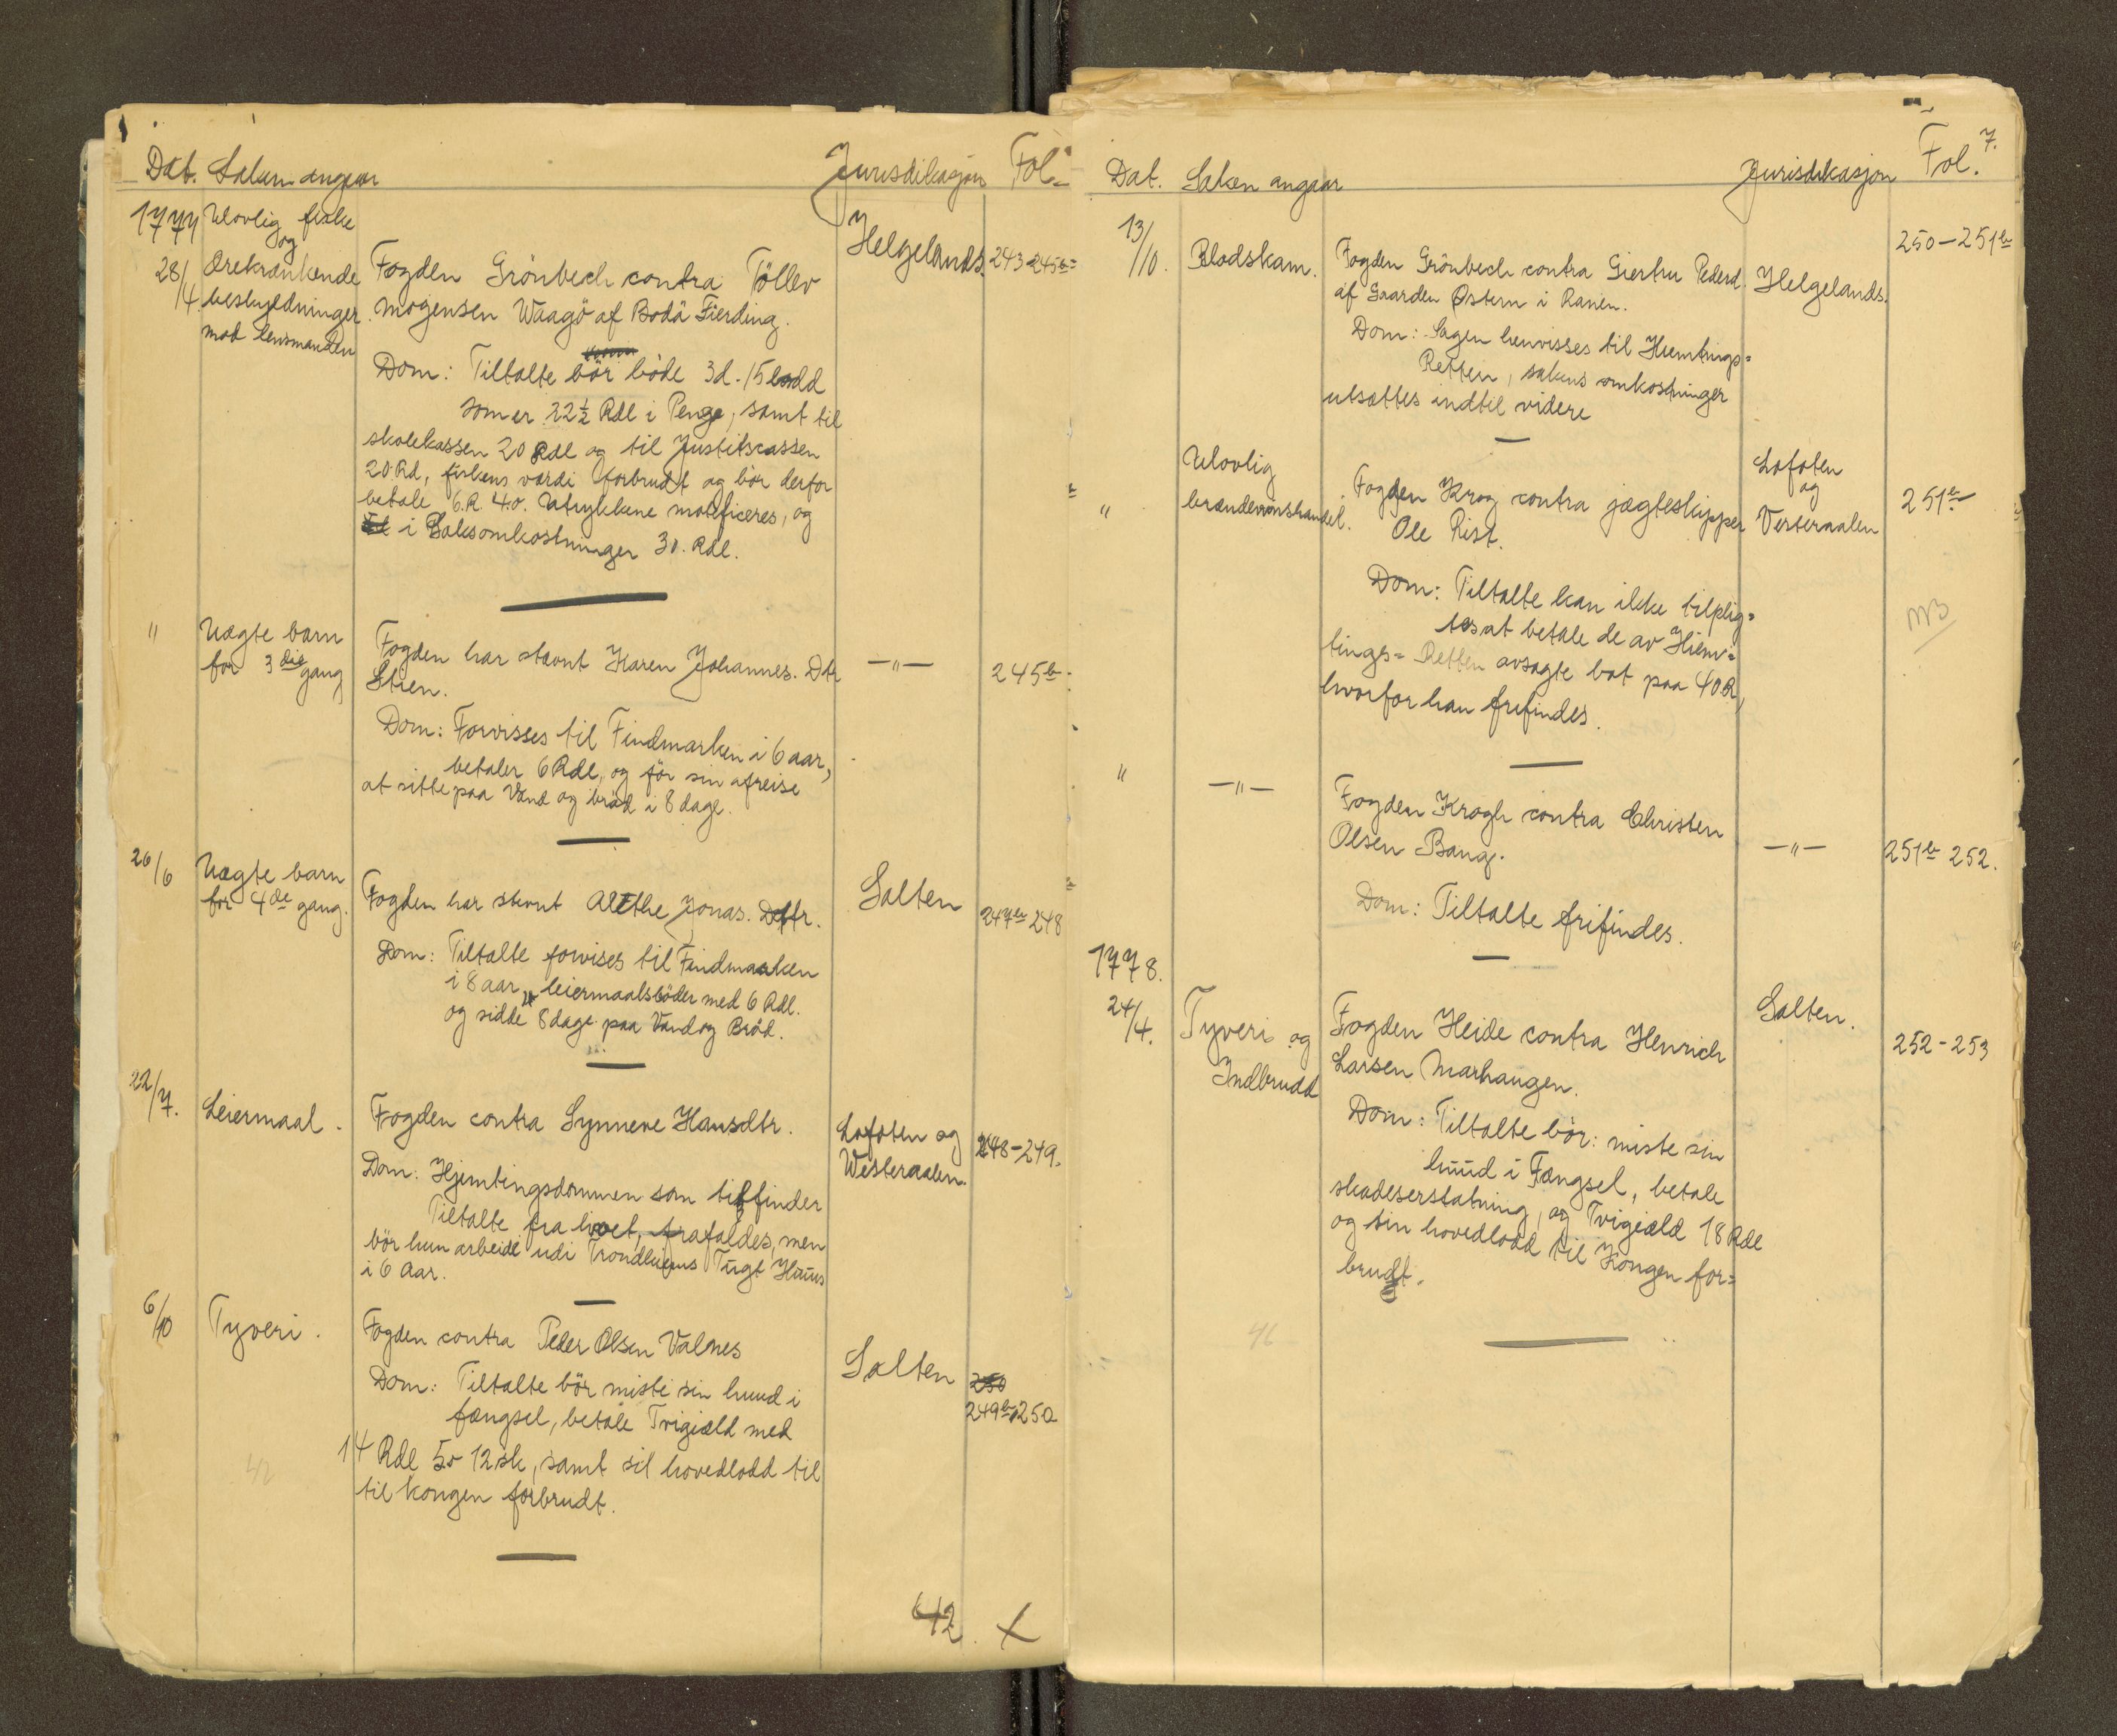 Dat. Saken angaar Jurisdikasjon Fol.
1777 Ulovlig fiske
og
28/4. Ærekrænkende
beskyldninger
mod lensmanden
Fogden Grönbech contra Töllev
Mogensen Waagö af Bodö Fierding.
Dom: Tiltalte bör böde 3d. 15 lodd
som er 22½ Rdl i Penge, samt til
skolekassen 20 Rdl og til Justitscassen
20 Rd, fiskens værdi forbrudt og bör derfor
betale 6.R. 4.o. Utrykkene mortificeres, og
i Saksomkostninger 30. Rdl.
Helgelands.
243-245b
" Uægte barn
for 3die gang
Fogden har stævnt Karen Johannes. Dtr
Stien.
Dom: Forvisses til Findmarken i 6 aar,
betaler 6 Rdl, og för sin afreise
at sitte paa Vand og bröd i 8 dage.
—"—
245b
26/6 Uægte barn
for 4de gang.
Fogden har stevnt Alethe Jonas. Dattr.
Dom: Tiltalte forvises til Findmarken
i 8 aar, leiermaalsböder med 6 Rdl.
og sidde 8 dage paa Vand og Bröd.
Salten
247b 248
22/7. Leiermaal.
Fogden contra Synneve Hansdtr.
Dom: Hjemtingsdommen som tilfinder
Tiltalte fra livet, frafaldes, men
bör hun arbeide udi Trondhiems Tugt Huus
i 6 Aar.
Lofoten og
Westeraalen.
248-249.
6/10 Tyveri.
Fogden contra Peder Olsen Valnes
Dom: Tiltalte bör miste sin huud i
fængsel, betale Tvigiæld med
14 Rdl 5o 12sk, samt sit hovedlodd til
til kongen forbrudt.
Salten
250
249b 250
42
42. X
7.
Dat. Saken angaar Jurisdikasjon Fol.
13/10. Blodskam.
Fogden Grönbech contra Giertru Pedersd.
af Gaarden Östern i Ranen.
Dom: Sagen henvisses til Hiemtings=
Retten, sakens omkostninger
utsættes indtil videre
Helgelands.
250-251b
" Ulovlig
brændevinshandel.
Fogden Krog contra jægteskipper
Ole Rist.
Dom: Tiltalte kan ikke tilplig=
tes at betale de av Hiem=
tings= Retten avsagte bot paa 40R,
hvorfor han frifindes.
Lofoten
og
Vesteraalen
251b
NB
" —"—
Fogden Krogh contra Christen
Olsen Bang.
Dom: Tiltalte frifindes.
—"—
251b 252.
1778.
24/4. Tyveri og
Indbrudd
Fogden Heide contra Henrich
Larsen Marhaugen.
Dom: Tiltalte bör: miste sin
huud i Fængsel, betale
skadeserstatning, og Tvigiæld 18 Rdl
og sin hovedlodd til Kongen for=
brudt.
Salten.
252-253